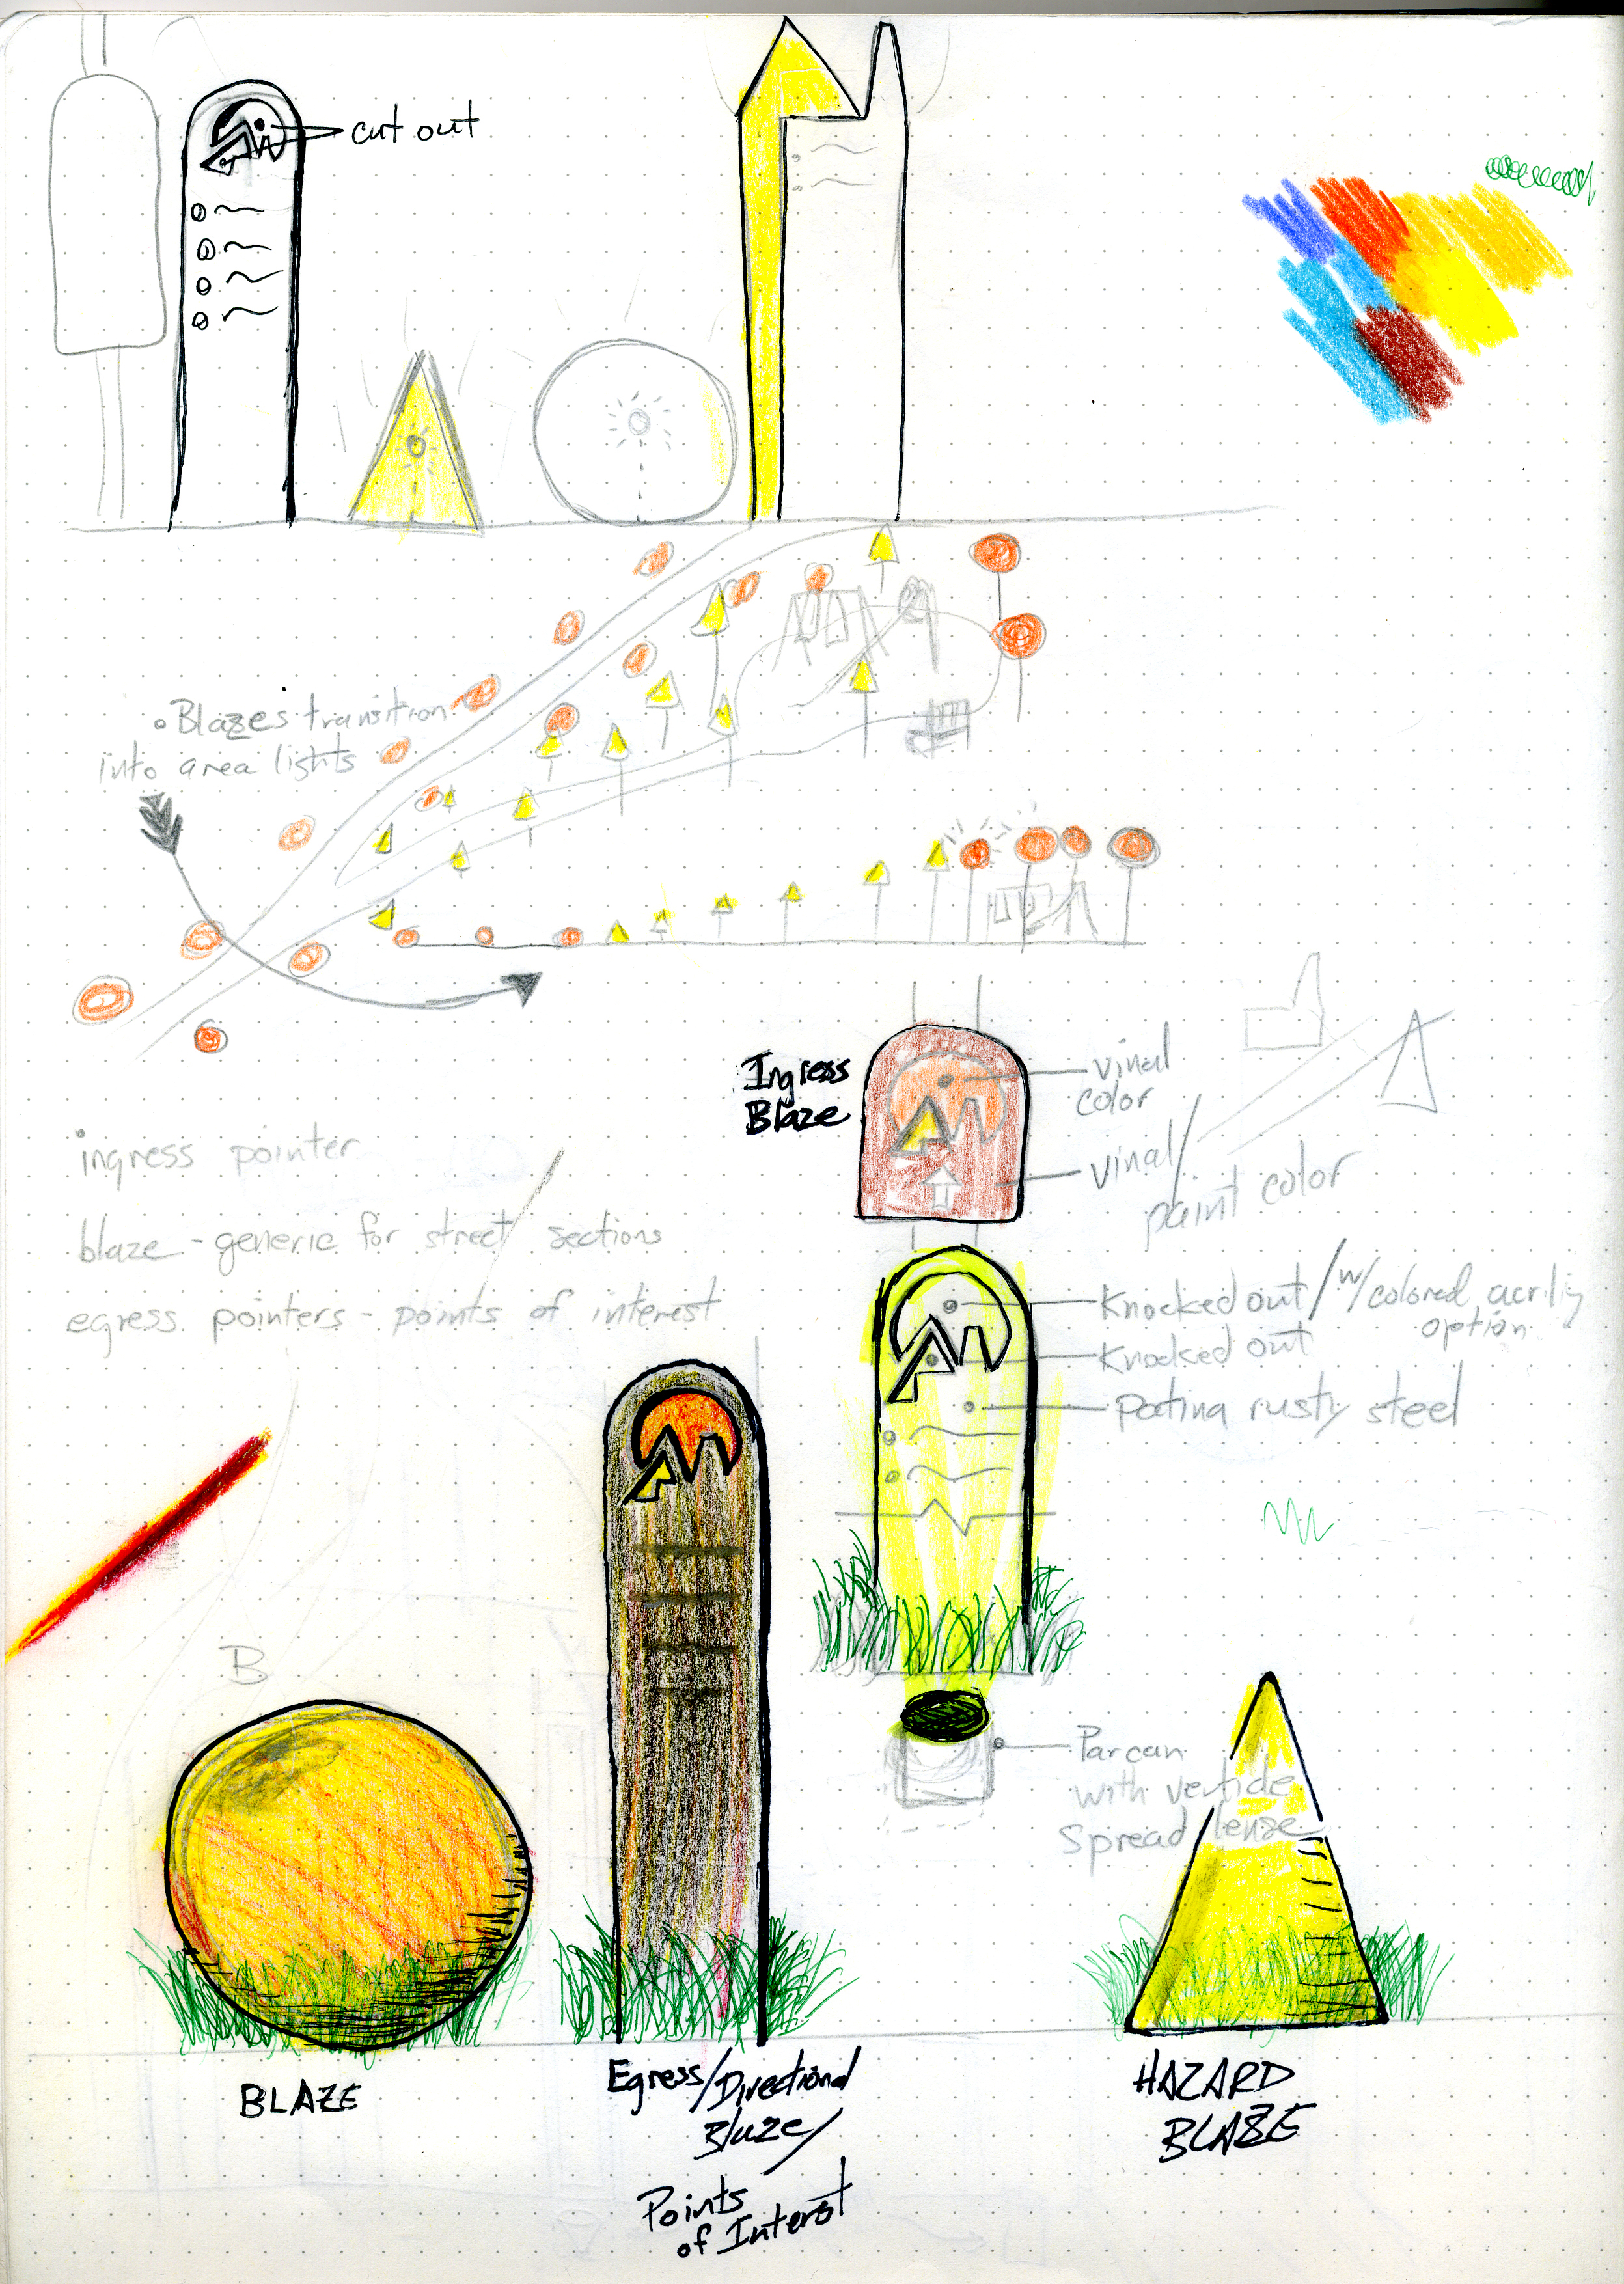 cut out
• Blazes transition
into area lights
Ingress
Blaze
vinal
color
vinal/
paint color
ingress pointer
blaze - generic for street sections
egress pointers - points of interest
Knocked out / w/ colored acriliy
option
Knocked out
patina rusty steel
B
Parcan
with verticle
Spread lense
BLAZE
Egress/Directional
Blaze/
Points
of Interst
HAZARD
BLAZE